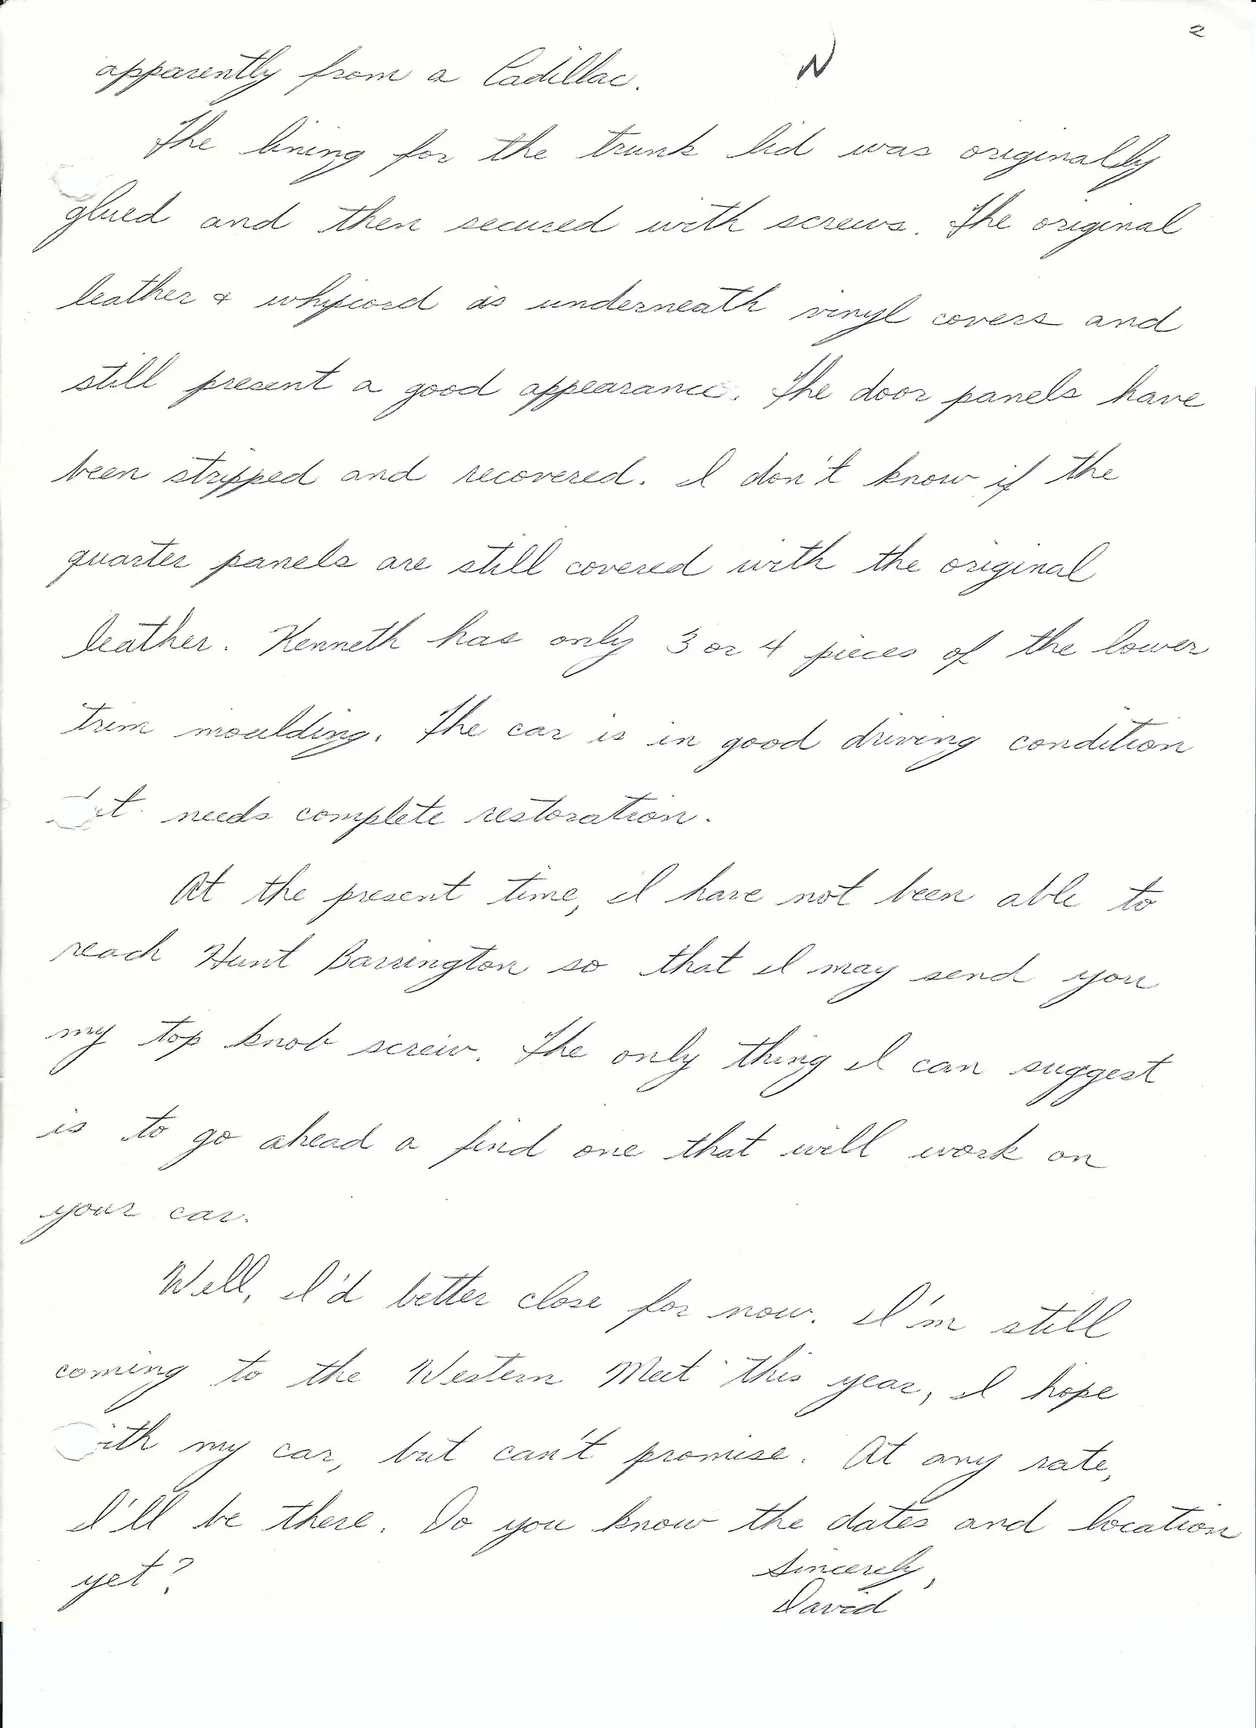 2
apparently from a Cadillac.
The lining for the trunk lid was originally
glued and then secured with screws. The original
leather & whipcord is underneath vinyl covers and
still present a good appearance. The door panels have
been stripped and recovered. I don't know if the
quarter panels are still covered with the original
leather. Kenneth has only 3 or 4 pieces of the lower
trim moulding. The car is in good driving condition
needs complete restoration.
At the present time, I have not been able to
reach Hunt Barrington so that I may send you
my top knob screw. The only thing I can suggest
is to go ahead a find one that will work on
your car.
Well, I'd better close for now. I'm still
coming to the Western Meet this year, I hope
ith my car, but can't promise. At any rate,
I'll be there. Do you know the dates and location
yet?
Sincerely,
David